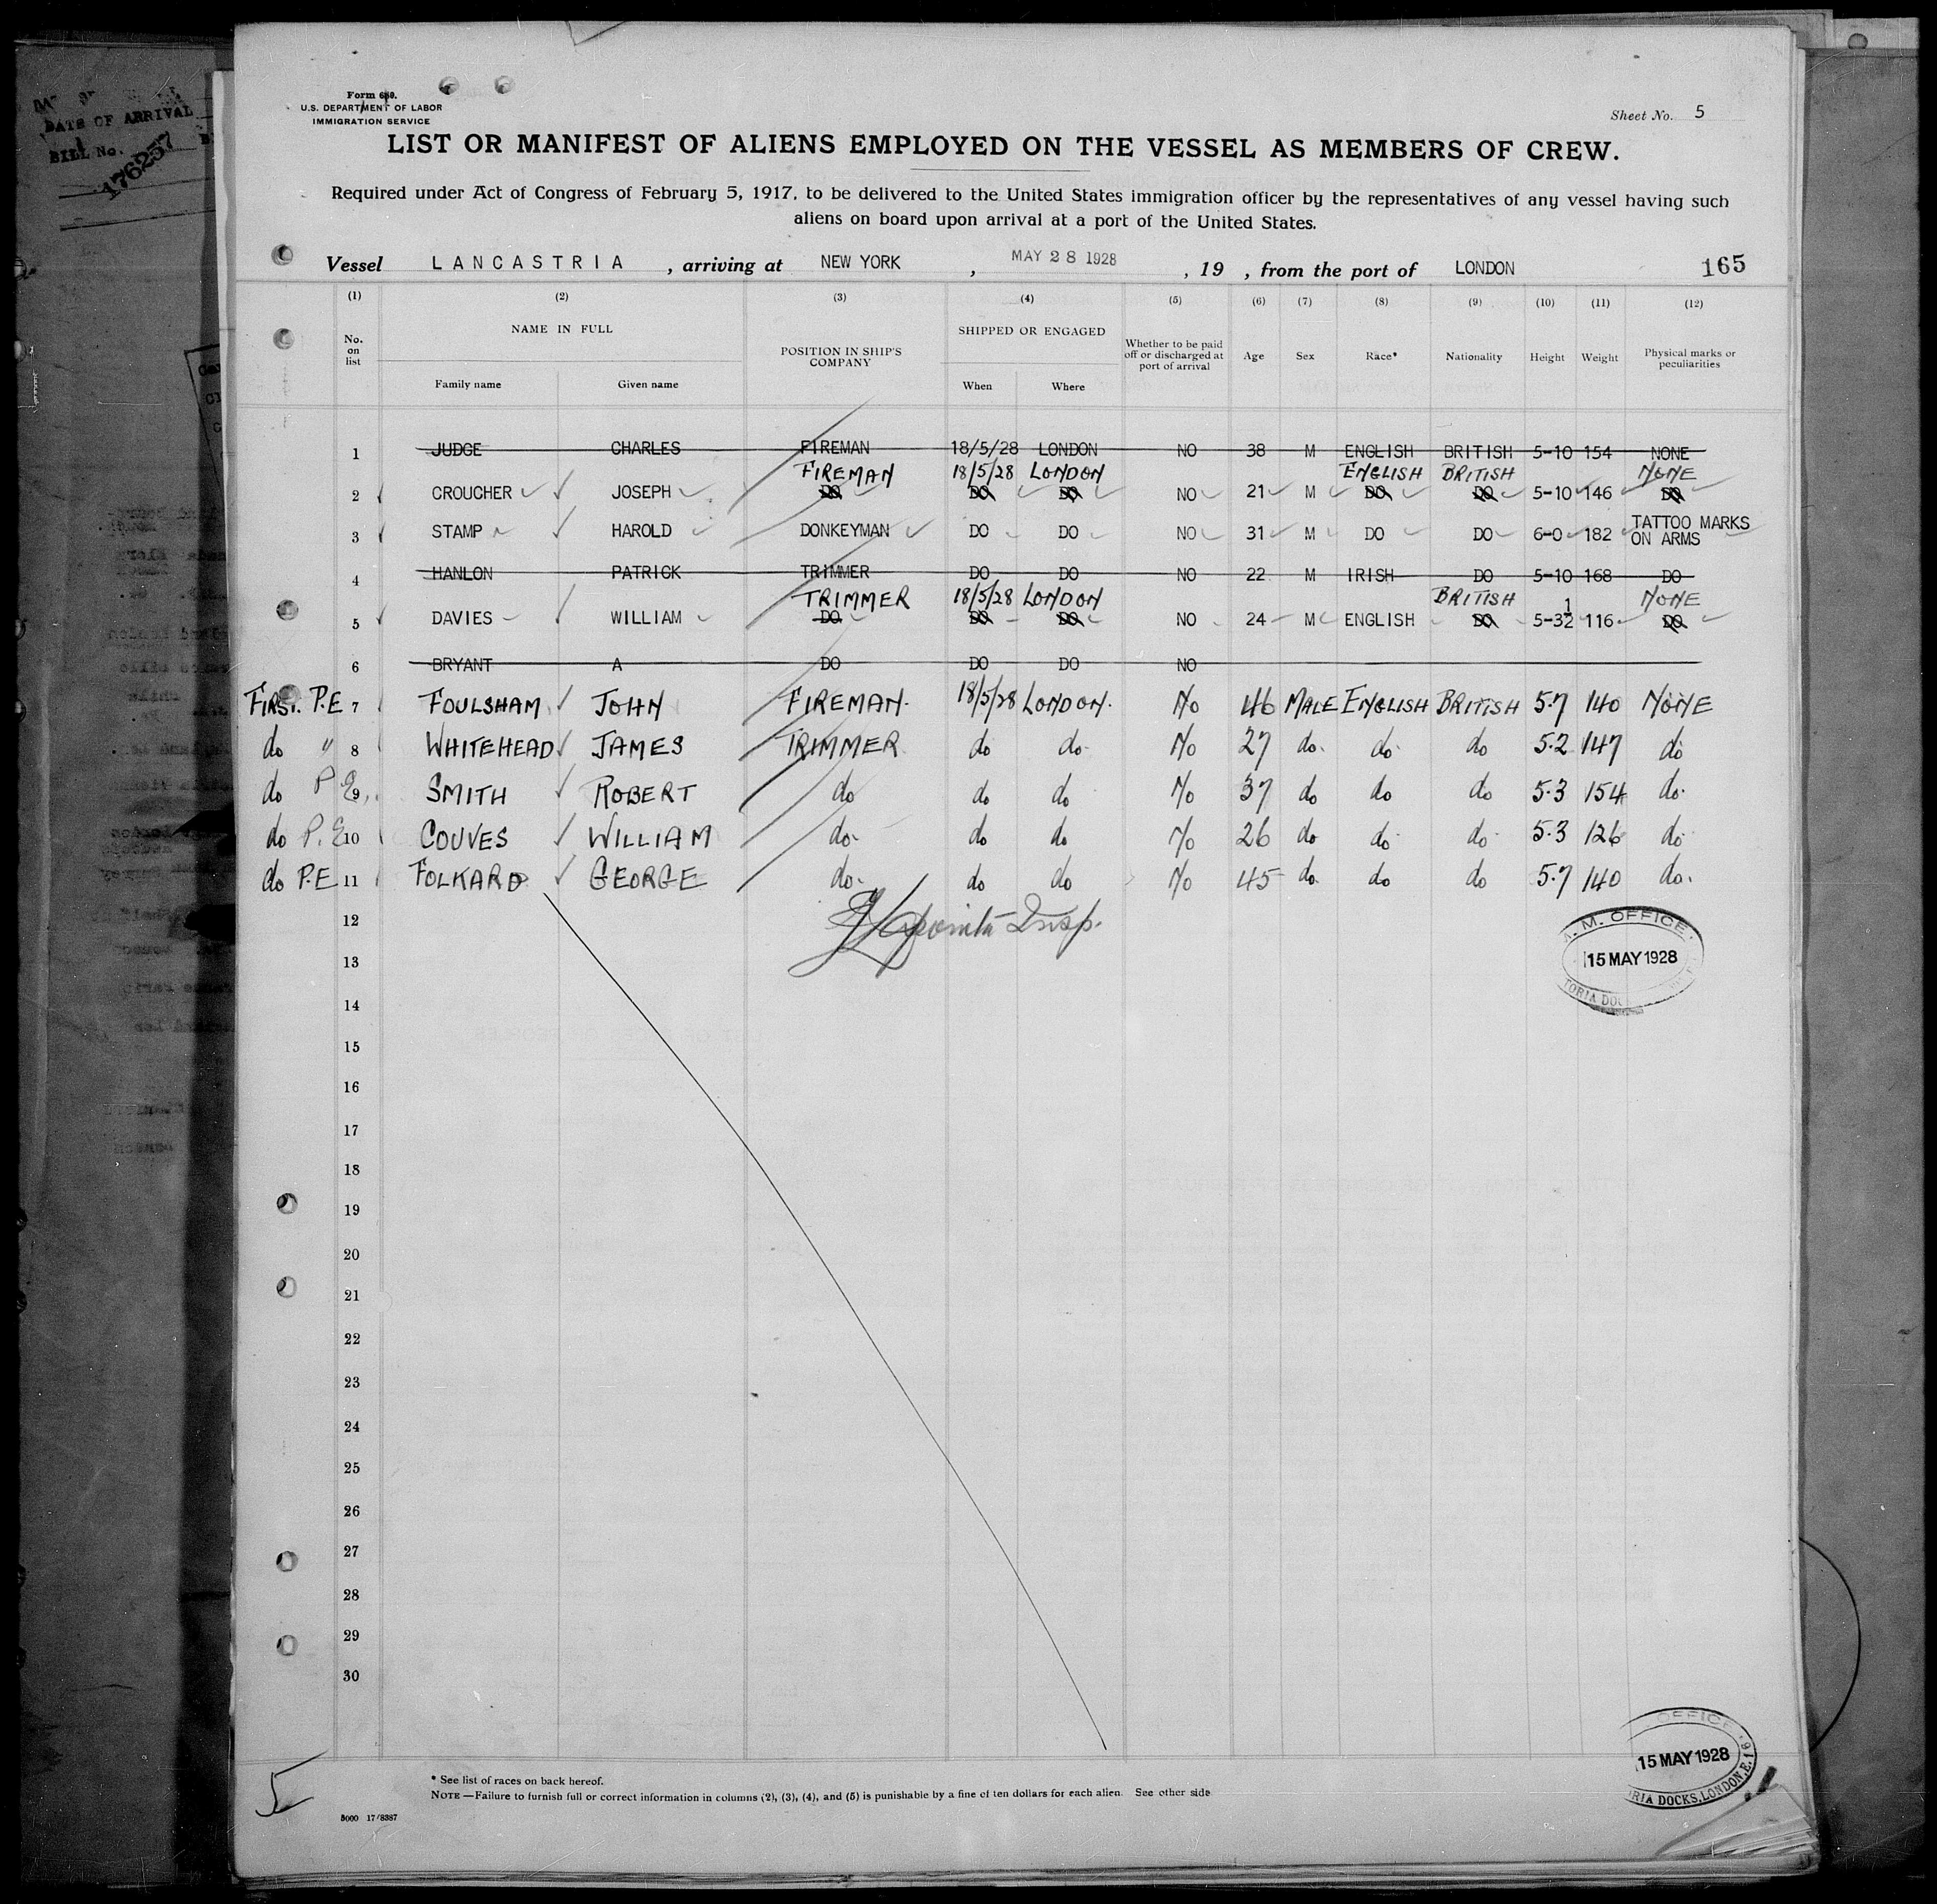 DATE OF ARRIVAL
BILL No.
176257
Form 680.
U.S. DEPARTMENT OF LABOR
IMMIGRATION SERVICE
Sheet No. 5
LIST OR MANIFEST OF ALIENS EMPLOYED ON THE VESSEL AS MEMBERS OF CREW.
Required under Act of Congress of February 5, 1917, to be delivered to the United States immigration officer by the representatives of any vessel having such
aliens on board upon arrival at a port of the United States.
Vessel LANCASTRIA , arriving at NEW YORK , MAY 28 1928 , 19 , from the port of LONDON 165
(1) (2) (3) (4) (5) (6) (7) (8) (9) (10) (11) (12)
No. on list NAME IN FULL Family name Given name POSITION IN SHIP'S COMPANY SHIPPED OR ENGAGED When Where Whether to be paid off or discharged at port of arrival Age Sex Race* Nationality Height Weight Physical marks or peculiarities
1 JUDGE CHARLES FIREMAN 18/5/28 LONDON NO 38 M ENGLISH BRITISH 5-10 154 NONE
FIREMAN 18/5/28 LONDON ENGLISH BRITISH NONE
2 CROUCHER JOSEPH DO DO DO NO 21 M DO DO 5-10 146 DO
3 STAMP HAROLD DONKEYMAN DO DO NO 31 M DO DO 6-0 182 TATTOO MARKS ON ARMS
4 HANLON PATRICK TRIMMER DO DO NO 22 M IRISH DO 5-10 168 DO
TRIMMER 18/5/28 LONDON BRITISH NONE
5 DAVIES WILLIAM DO DO DO NO 24 M ENGLISH DO 5-3½ 116 DO
6 BRYANT A DO DO DO NO
FIRST P.E 7 FOULSHAM JOHN FIREMAN. 18/5/28 LONDON. No 46 MALE ENGLISH BRITISH 5.7 140 NONE
do " 8 WHITEHEAD JAMES TRIMMER do do No 27 do. do do 5.2 147 do
do P.E 9 SMITH ROBERT do do do No 37 do do do 5.3 154 do.
do P.E 10 COUVES WILLIAM do. do do No 26 do do do 5.3 126 do
do P.E 11 FOLKARD GEORGE do. do do No 45 do. do do 5.7 140 do.
Insp.
12
13
14
15
16
17
18
19
20
21
22
23
24
25
26
27
28
29
30
M. OFFICE
15 MAY 1928
TORIA DOC
OFFICE
15 MAY 1928
RIA DOCKS, LONDON, E.16
5
* See list of races on back hereof.
NOTE—Failure to furnish full or correct information in columns (2), (3), (4), and (5) is punishable by a fine of ten dollars for each alien. See other side
5000 17/8387